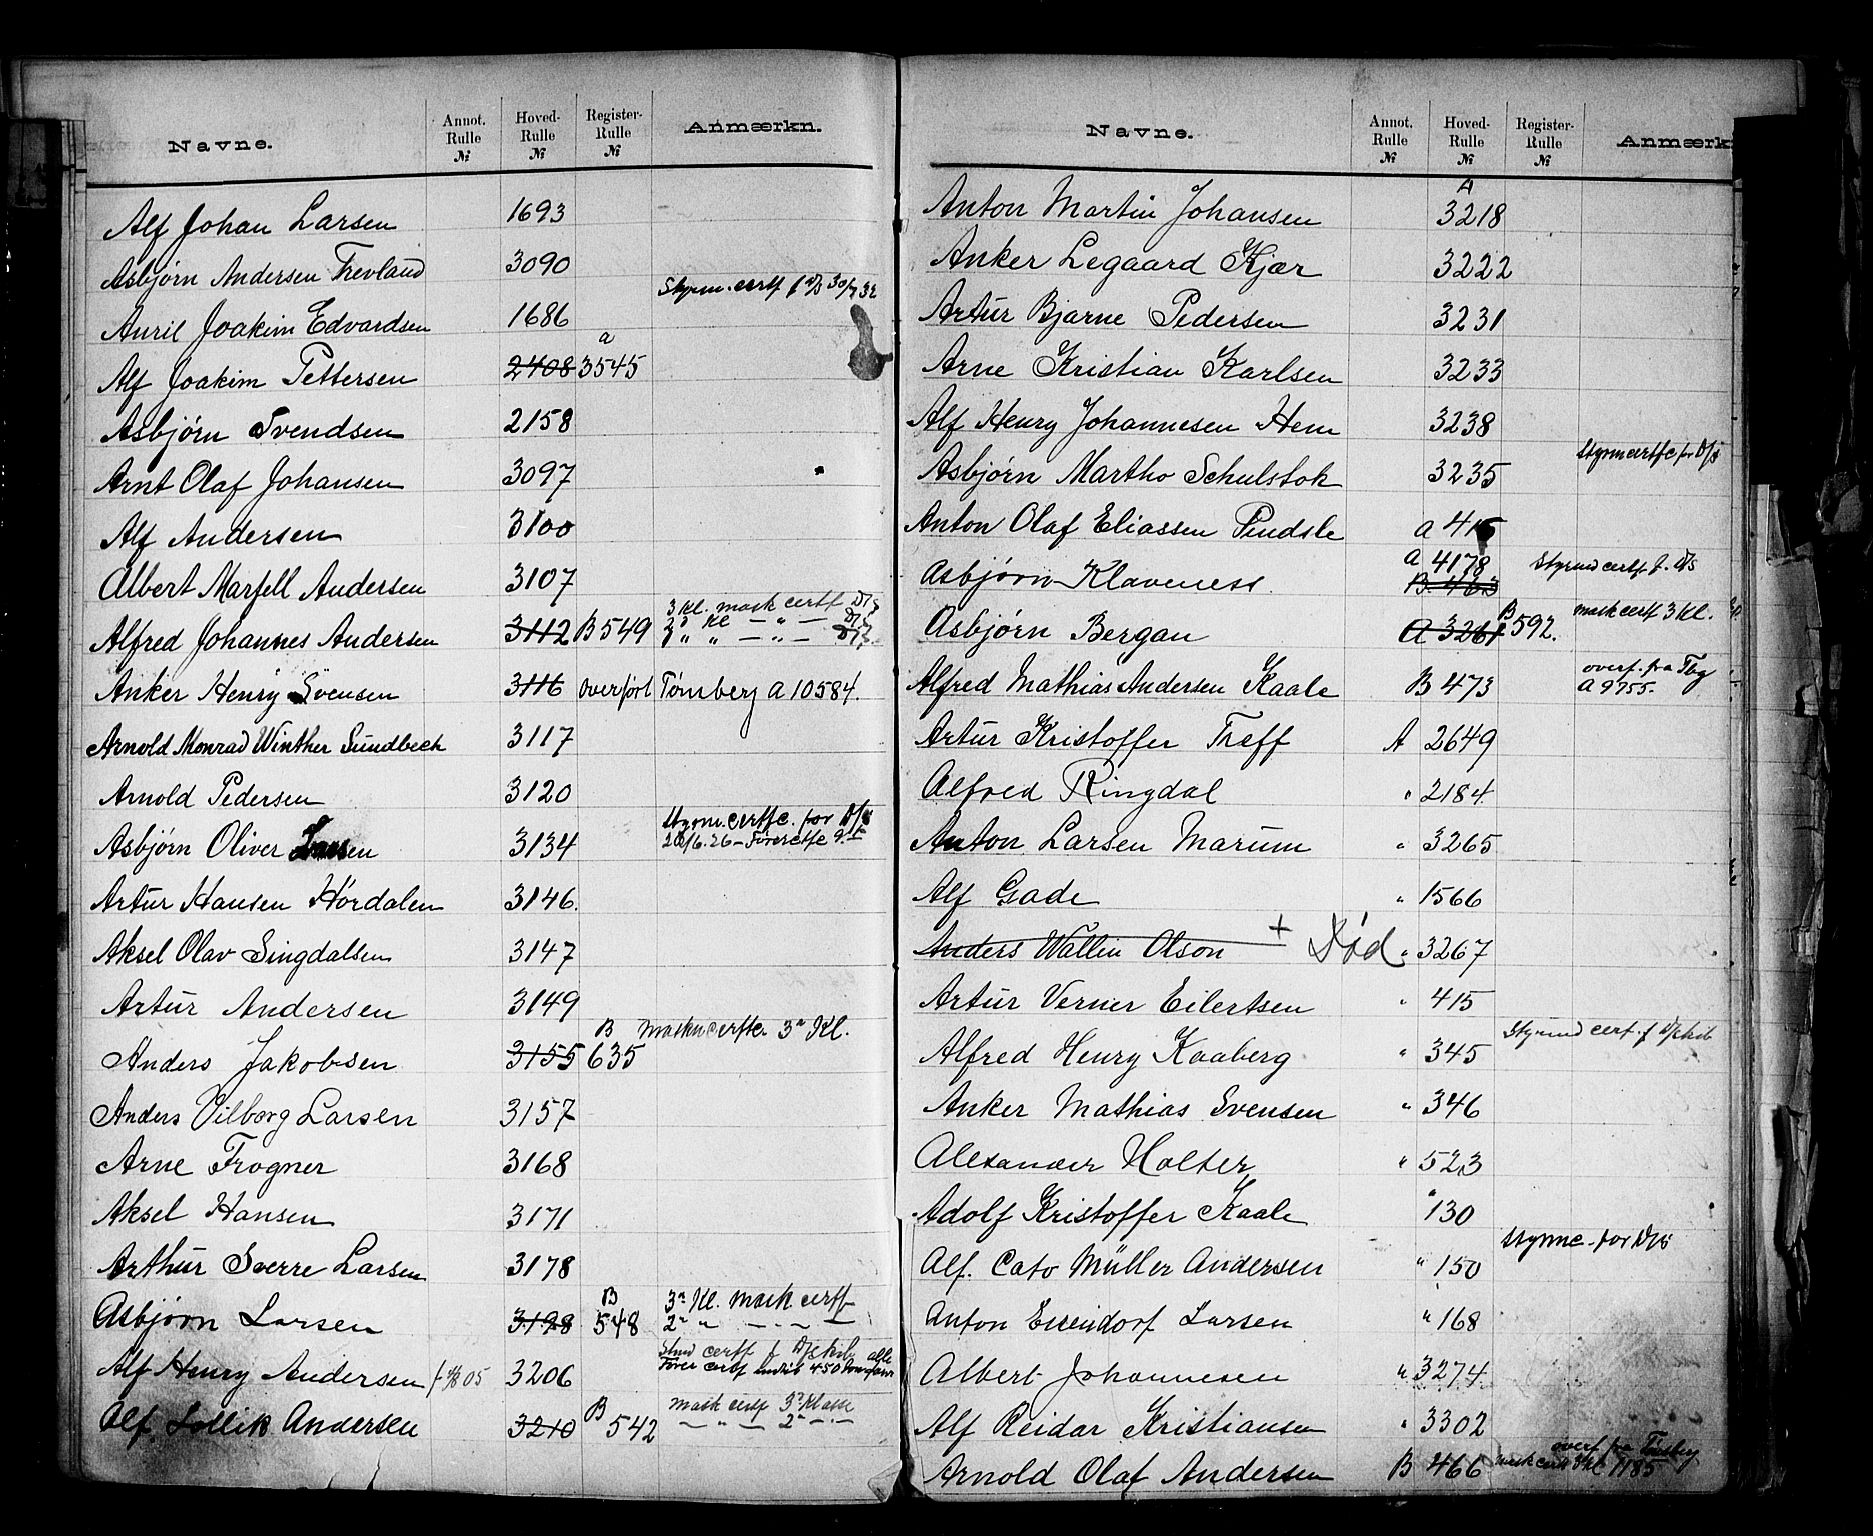 Navne. Annot. Rulle № Hoved-Rulle № Register-Rulle № Anmærkn.
Alf Johan Larsen 1693
Asbjørn Andersen Trevland 3090
Auril Joakim Edvardsen 1686 Styrm. certf f D/S 30/4 32
Alf Joakim Pettersen 2408 a 3545
Asbjørn Svendsen 2158
Arnt Olaf Johansen 3097
Alf Andersen 3100
Albert Marfell Andersen 3107
Alfred Johannes Andersen 3112 B 549 3 Kl. mask certf
Anker Henry Svensen 3116 overført Tønsberg A 10584.
Arnold Monrad Winther Sundbeck 3117
Arnold Pedersen 3120
Asbjørn Oliver Larsen 3134 Styrm. certfc. for D/S
Artur Hansen Hørdalen 3146.
Aksel Olav Singdalsen 3147
Artur Andersen 3149
Anders Jakobsen 3155 B 635 Maskncertfc. 3 Kl.
Anders Vilborg Larsen 3157
Arne Frogner 3168
Aksel Hansen 3171
Arthur Sverre Larsen 3178
Asbjørn Larsen 3198 B 548 3 Kl. mask certf
2 " — " —
Alf Henry Andersen 05 3206
Alf Lollik Andersen 3210 B 542 mask certf 3 Klasse
— " — 2 — " —
Navne. Annot. Rulle № Hoved-Rulle № Register-Rulle № Anmærk
Anton Martin Johansen A 3218
Anker Legaard Kjær 3222
Artur Bjarne Pedersen 3231
Arne Kristian Karlsen 3233
Alf Henry Johannesen Hem 3238
Asbjørn Martho Schulstok 3235 Styrmcertfc for D/S
Anton Olaf Eliassen Pindsle a 416
Asbjørn Klaveness. a 4178 B. 463 Styrmd certf f. D/S
Asbjørn Bergan A 3261 B 592. mask certf 3 Kl.
Alfred Mathias Andersen Kaale B 473 overf. fra Tbg A 9755.
Artur Kristoffer Treff A 2649
Alfred Ringdal " 2184
Anton Larsen Marum " 3265
Alf Gade " 1566
Anders Wallin Olson + Død " 3267
Artur Verner Eilertsen " 415
Alfred Henry Kaaberg " 345 Styrmd cert. f D/skib
Anker Mathias Svensen " 346
Alexander Holter " 523
Adolf Kristoffer Kaale " 130
Alf. Cato Müller Andersen " 150 Styrmc. for D/S
Anton Larsen " 168
Albert Johannesen " 3274
Alf Reidar Kristiansen " 3302
Arnold Olaf Andersen B 466 overf fra Tønsberg 1185